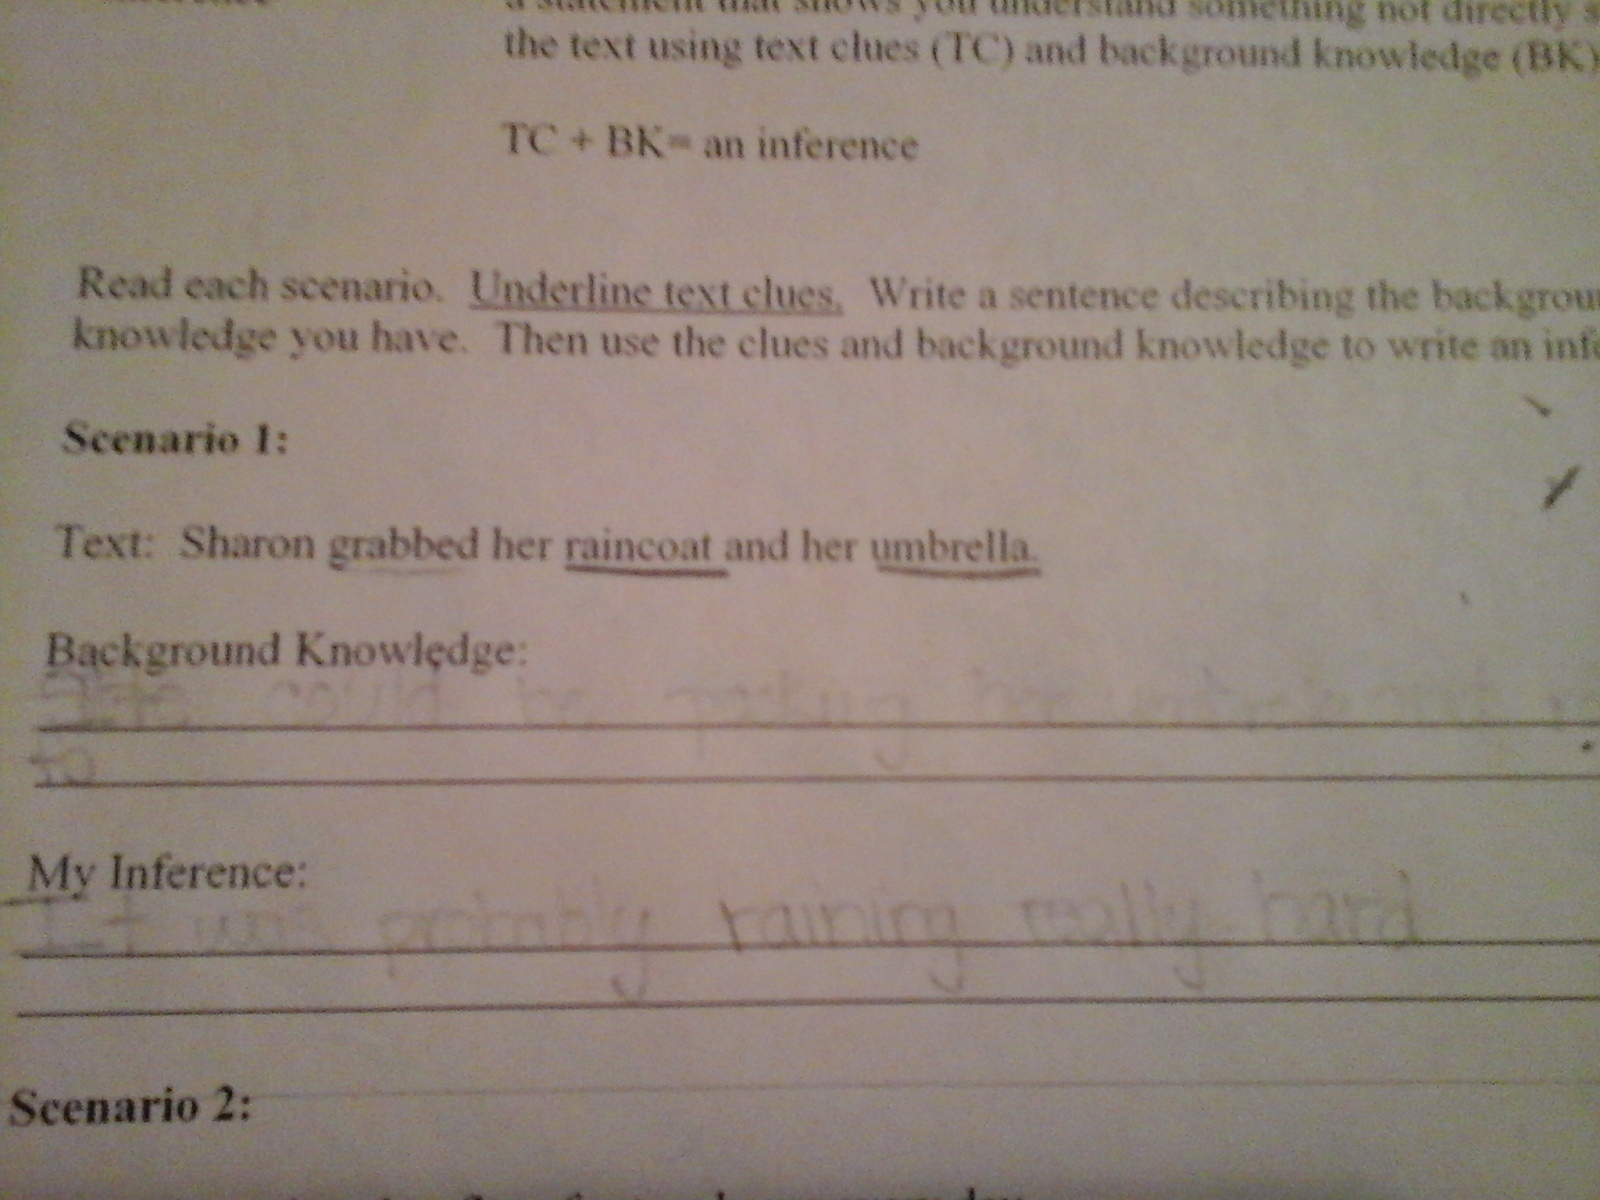 a statement that shows you understand something not directly s
the text using text clues (TC) and background knowledge (BK)
TC + BK= an inference
Read each scenario. Underline text clues. Write a sentence describing the backgrou
knowledge you have. Then use the clues and background knowledge to write an infe
Scenario 1:
Text: Sharon grabbed her raincoat and her umbrella.
Background Knowledge:
could be and
to
My Inference:
It was probably raining really hard
Scenario 2: